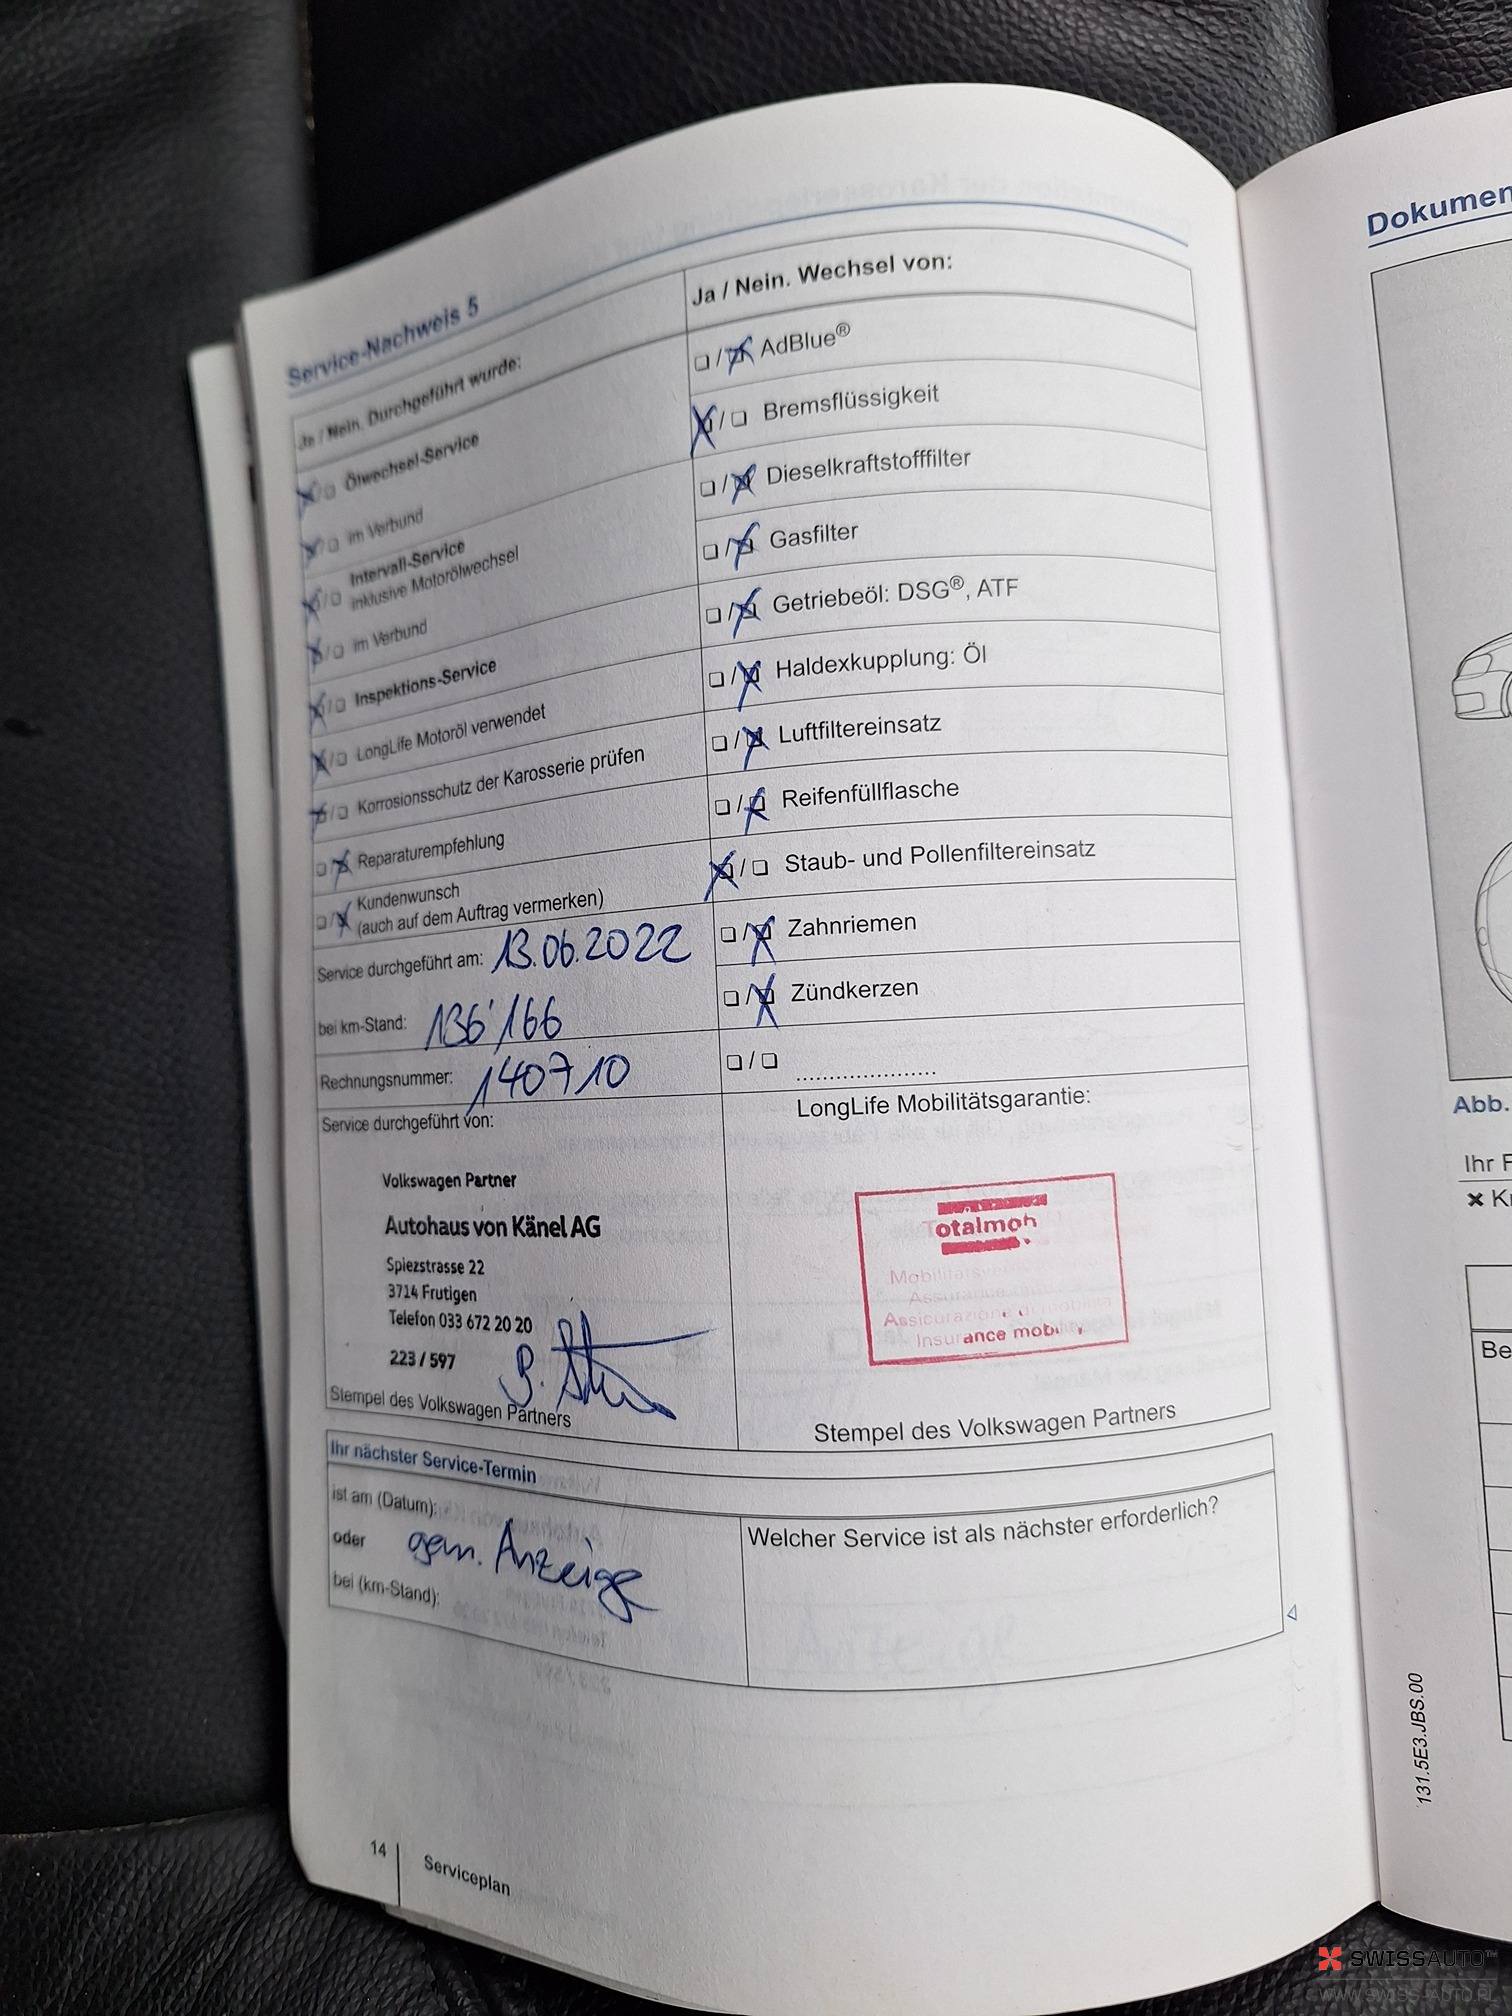 Service-Nachweis 5
Ja / Nein. Durchgeführt wurde:
Ölwechsel-Service
im Verbund
Intervall-Service
inklusive Motorölwechsel
im Verbund
Inspektions-Service
LongLife Motoröl verwendet
Korrosionsschutz der Karosserie prüfen
Reparaturempfehlung
Kundenwunsch
(auch auf dem Auftrag vermerken)
Service durchgeführt am: 13.06.2022
bei km-Stand: 136'166
Rechnungsnummer: 140710
Service durchgeführt von:
Volkswagen Partner
Autohaus von Känel AG
Spiezstrasse 22
3714 Frutigen
Telefon 033 672 20 20
223 / 597
Stempel des Volkswagen Partners
Ja / Nein. Wechsel von:
AdBlue®
Bremsflüssigkeit
Dieselkraftstofffilter
Gasfilter
Getriebeöl: DSG®, ATF
Haldexkupplung: Öl
Luftfiltereinsatz
Reifenfüllflasche
Staub- und Pollenfiltereinsatz
Zahnriemen
Zündkerzen
LongLife Mobilitätsgarantie:
Totalmob
Assicurazione di mobilità
Insurance mobility
Stempel des Volkswagen Partners
Ihr nächster Service-Termin
ist am (Datum):
oder gem. Anzeige
bei (km-Stand):
Welcher Service ist als nächster erforderlich?
14 Serviceplan
Dokumen
Abb.
Ihr F
Be
131.5E3.JBS.00
SWISSAUTO
WWW.SWISS-AUTO.PL